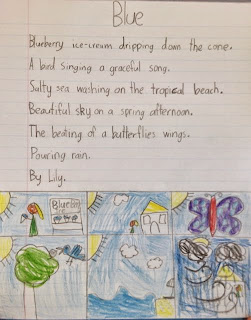 Blue
Blueberry ice-cream dripping down the cone.
A bird singing a graceful song.
Salty sea washing on the tropical beach.
Beautiful sky on a spring afternoon.
The beating of a butterflies wings.
Pouring rain.
By Lily.